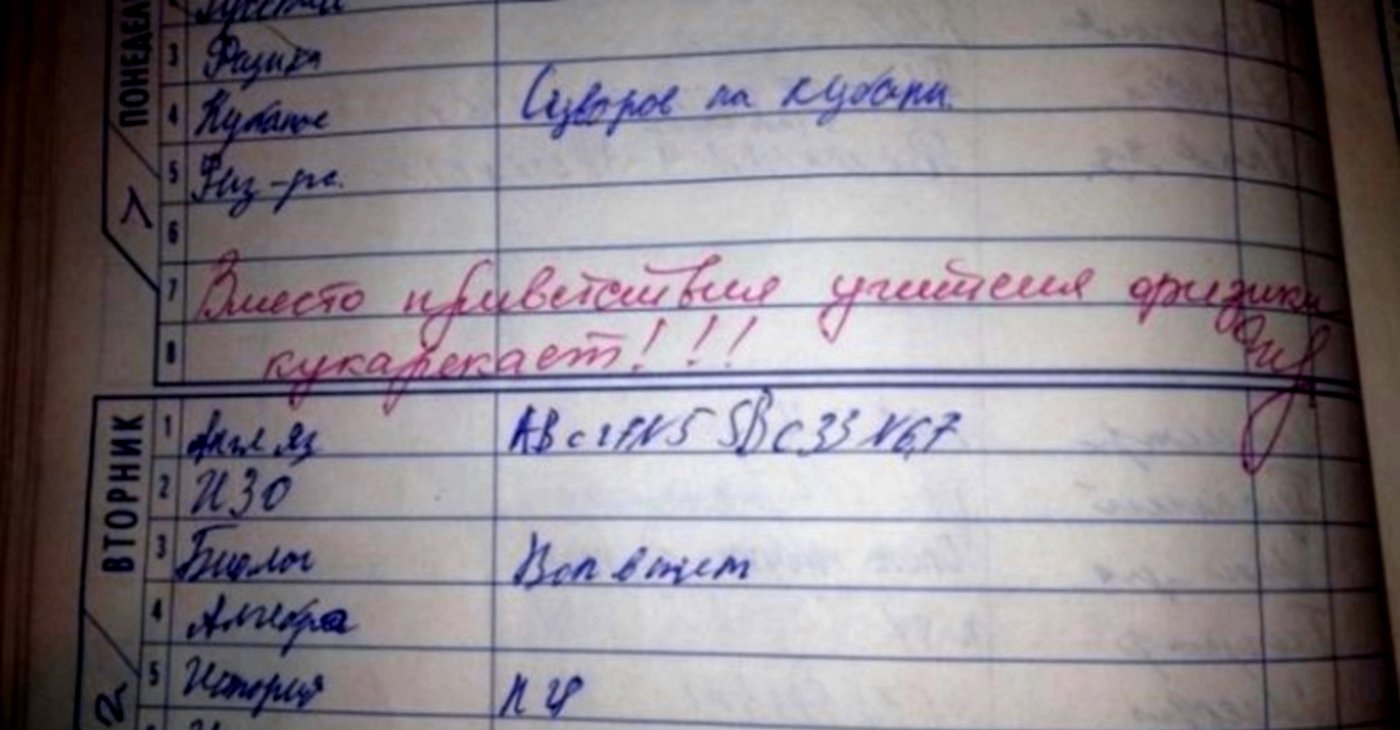 ПОНЕДЕЛ
Русский
3 Физика
4 Кубанов Суворов на Кубани.
5 Физ-ра.
1
6
7 Вместо приветствия учителя физики
8 кукарекает!!!
ВТОРНИК
1 Англ яз АВ с 27 N5 SB с 33 N6,7
2 ИЗО
3 Биолог Воп в тет
4 Алгебра
5 История П 4
2